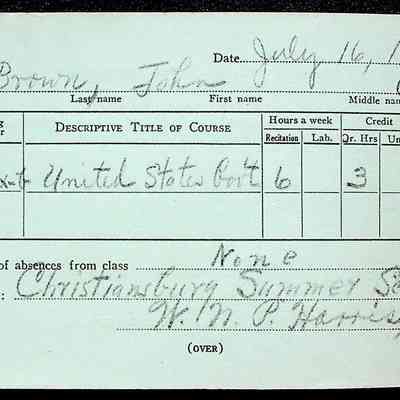 Date July 16, 1
Brown, John
Last name First name Middle nam
Hours a week Credit
DESCRIPTIVE TITLE OF COURSE Recitation Lab. Qr. Hrs Un
United States Gov't 6 3
of absences from class None
: Christiansburg Summer Sc
W. N. P. Harris
(OVER)